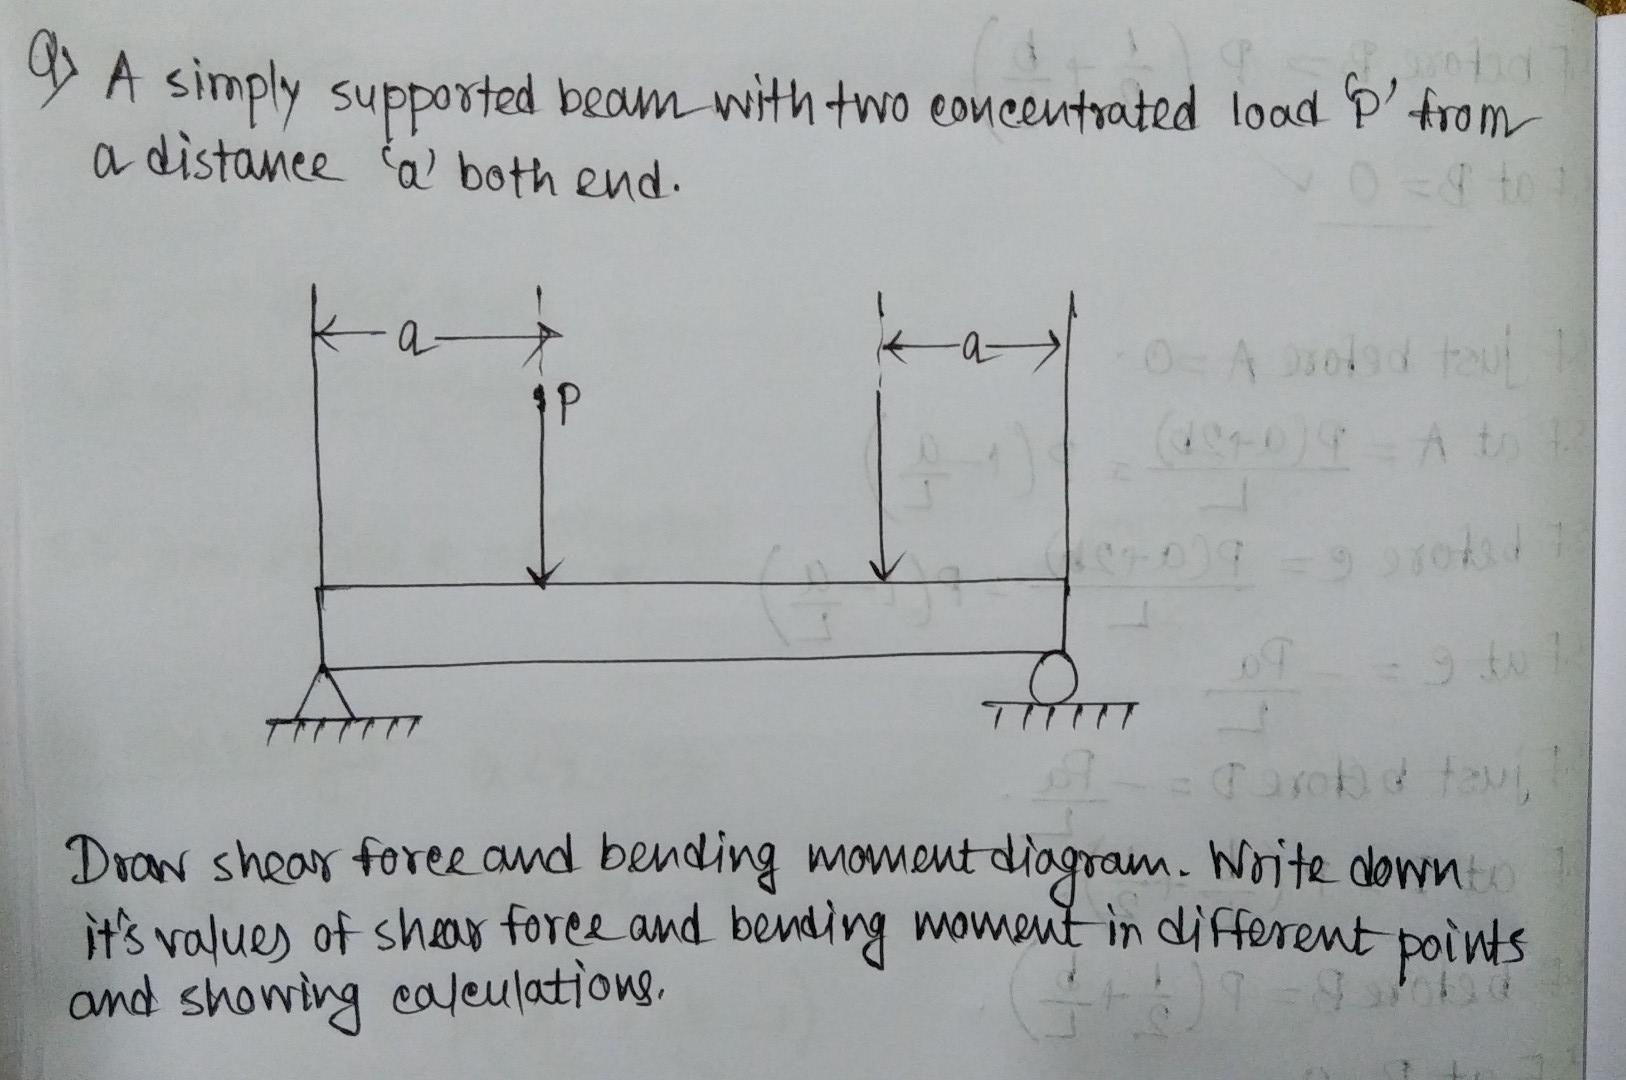 Q) A simply supported beam with two concentrated load 'P' from
a distance 'a' both end.
a
a
P
Draw shear force and bending moment diagram. Write down
it's values of shear force and bending moment in different points
and showing calculations.